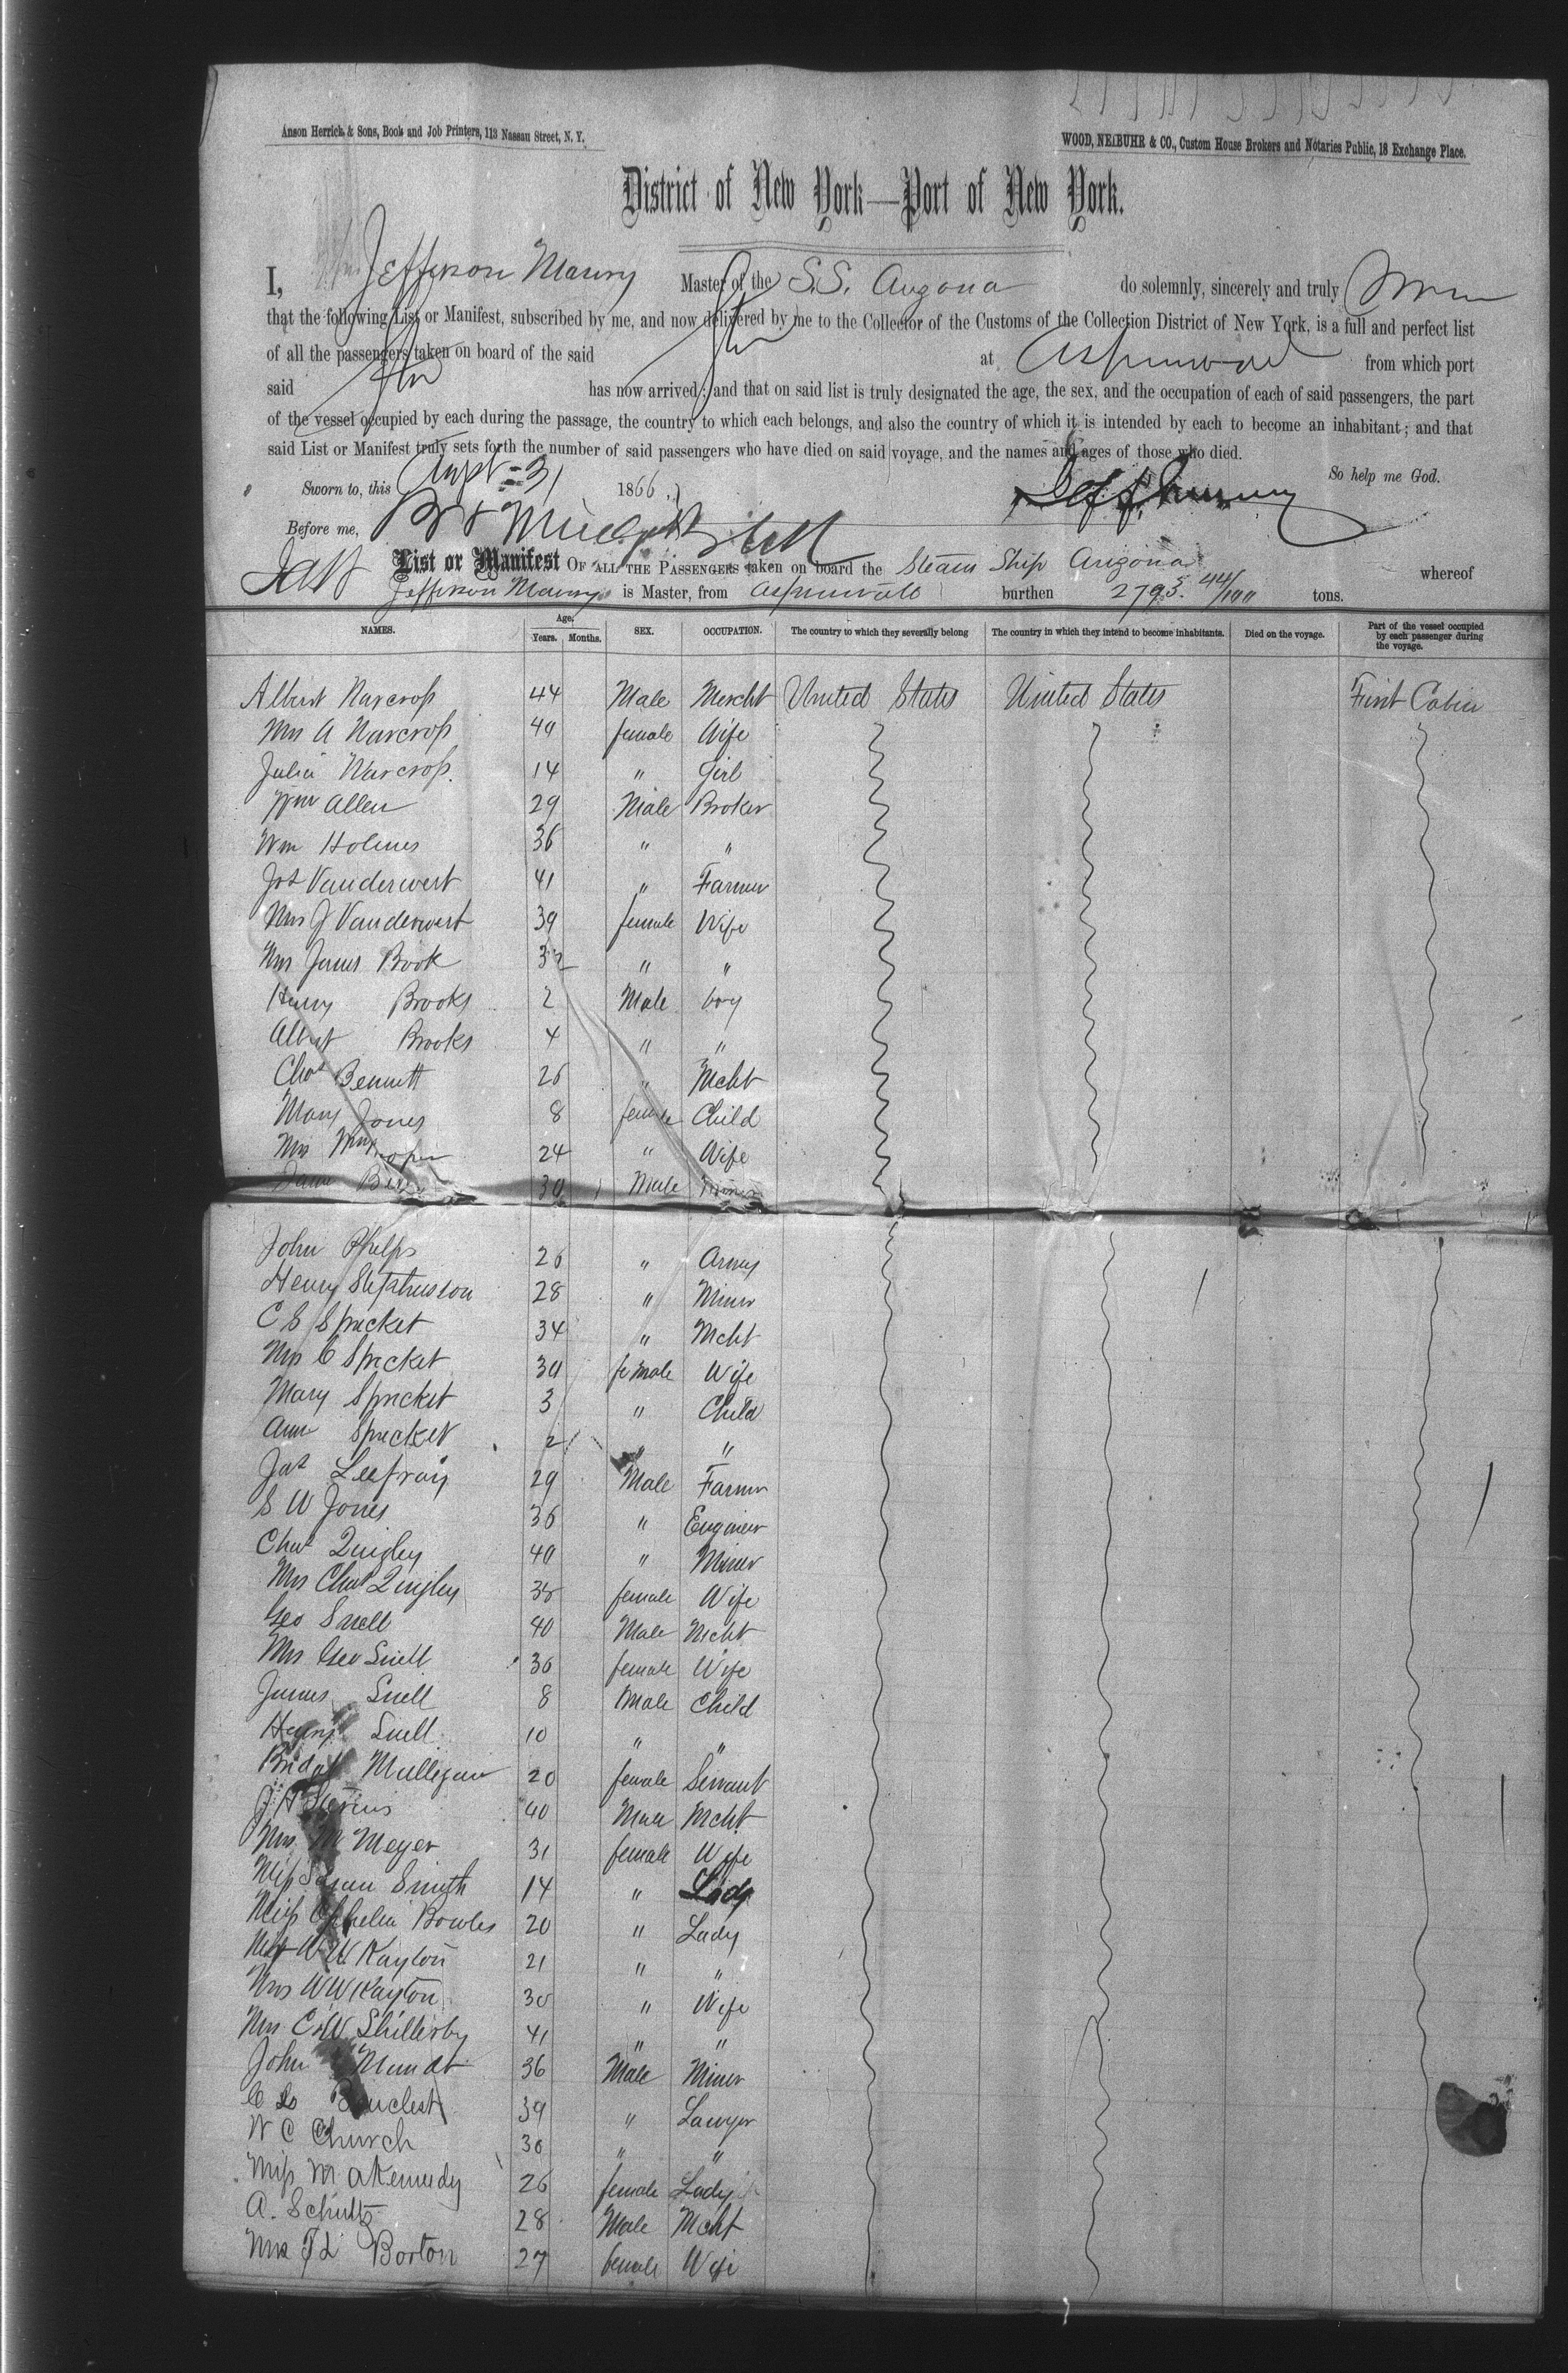 Anson Herrick & Sons, Book and Job Printers, 113 Nassau Street, N. Y.
WOOD, NEIBUHR & CO., Custom House Brokers and Notaries Public, 18 Exchange Place.
District of New York—Port of New York.
I, Jefferson Maury Master of the S.S. Arizona do solemnly, sincerely and truly swear
that the following List or Manifest, subscribed by me, and now delivered by me to the Collector of the Customs of the Collection District of New York, is a full and perfect list
of all the passengers taken on board of the said Str at Aspinwall from which port
said Str has now arrived; and that on said list is truly designated the age, the sex, and the occupation of each of said passengers, the part
of the vessel occupied by each during the passage, the country to which each belongs, and also the country of which it is intended by each to become an inhabitant; and that
said List or Manifest truly sets forth the number of said passengers who have died on said voyage, and the names and ages of those who died.
Sworn to, this 31 1866, So help me God.
Before me, Jeff. Maury
List or Manifest OF ALL THE PASSENGERS taken on board the Steam Ship Arizona whereof
Jefferson Maury is Master, from Aspinwall burthen 2793. 44/100 tons.
NAMES. Age. Years. Months. SEX. OCCUPATION. The country to which they severally belong The country in which they intend to become inhabitants. Died on the voyage. Part of the vessel occupied by each passenger during the voyage.
Albert Narcross 44 Male Mercht United States United States First Cabin
Mrs A Narcross 40 female Wife
Julia Narcross. 14 " Girl
Wm Allen 29 Male Broker
Wm Holmes 36 " "
Jos Vanderwert 41 " Farmer
Mrs J Vanderwert 39 female Wife
Mrs James Book 32 " "
Henry Brooks 2 Male boy
Albert Brooks 4 " "
Chas Bennett 26 " Mcht
Mary Jones 8 female Child
Mrs Wm 24 " Wife
30 Male Miner
John Phelps 26 " Army
Henry Stephenson 28 " Miner
C S Spricket 34 " Mcht
Mrs C Spricket 30 female Wife
Mary Spricket 3 " Child
Ann Spricket 2 " "
Jas 29 Male Farmer
S W Jones 36 " Engineer
Chas Quigley 40 " Miner
Mrs Chas Quigley 35 female Wife
Geo Snell 40 Male Mcht
Mrs Geo Snell 36 female Wife
James Snell 8 Male Child
Henry Snell 10 " "
Bridgt Mulligan 20 female Servant
J H Stevens 40 Male Mcht.
Mrs M Meyer 31 female Wife
Miss Susan Smith 14 " Lady
Miss Ophelia Bowles 20 " Lady
W W Kayton 21 " "
Mrs W W Kayton 30 " Wife
Mrs C W Shillerby 41 " "
John Mundt 36 Male Miner
39 " Lawyer
W C Church 30 " "
Miss M A Kennedy 26 female Lady
A. Schultz 28 Male Mcht
Mrs T L Borton 27 female Wife